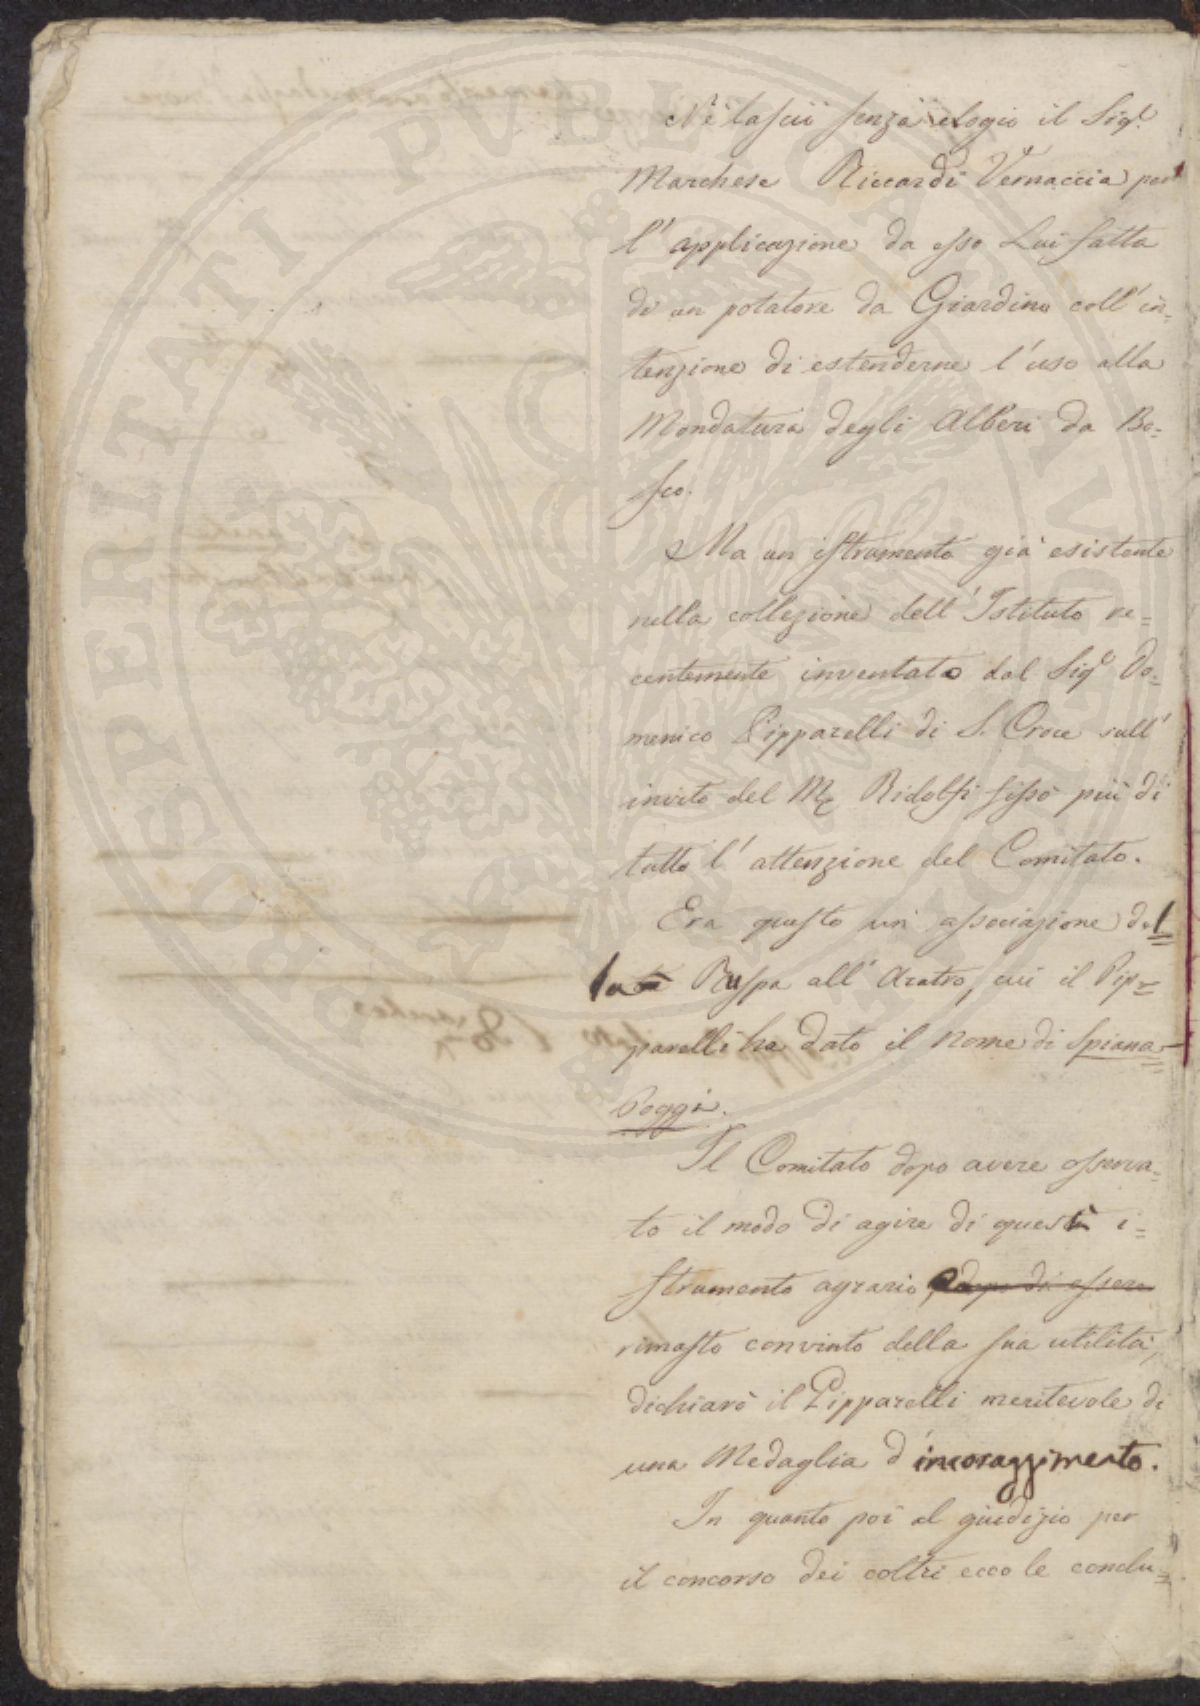 Nè lasciò senza elogio il Sigr.
Marchese Riccardi Vernaccia per
l'applicazione da esso Lui fatta
di un potatore da Giardino coll'in=
tenzione di estenderne l'uso alla
Mondatura degli Alberi da Bo=
sco.
Ma un istrumento già esistente
nella collezione dell'Istituto re=
centemente inventato dal Sigr. Do=
menico Pipparelli di S. Croce sull'
invito del Me Ridolfi fissò più di
tutto l'attenzione del Comitato.
Era questo un'associazione del=
la Ruspa all'Aratro, cui il Pip=
parelli ha dato il nome di Spiana=
Poggi.
Il Comitato dopo avere osserva=
to il modo di agire di questo i=
strumento agrario, e dopo di essere
rimasto convinto della sua utilità,
dichiarò il Pipparelli meritevole di
una Medaglia d'incoraggimento.
In quanto poi al giudizio per
il concorso dei coltri ecco le conclu=
PROSPERITATI PUBLICAE AUGENDAE